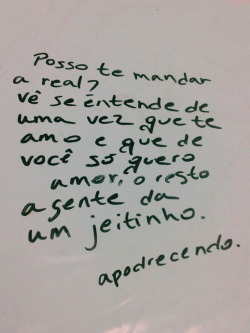 Posso te mandar
a real?
vê se entende de
uma vez que te
amo e que de
você só quero
amor, o resto
a gente da
um jeitinho.
apodrecendo.